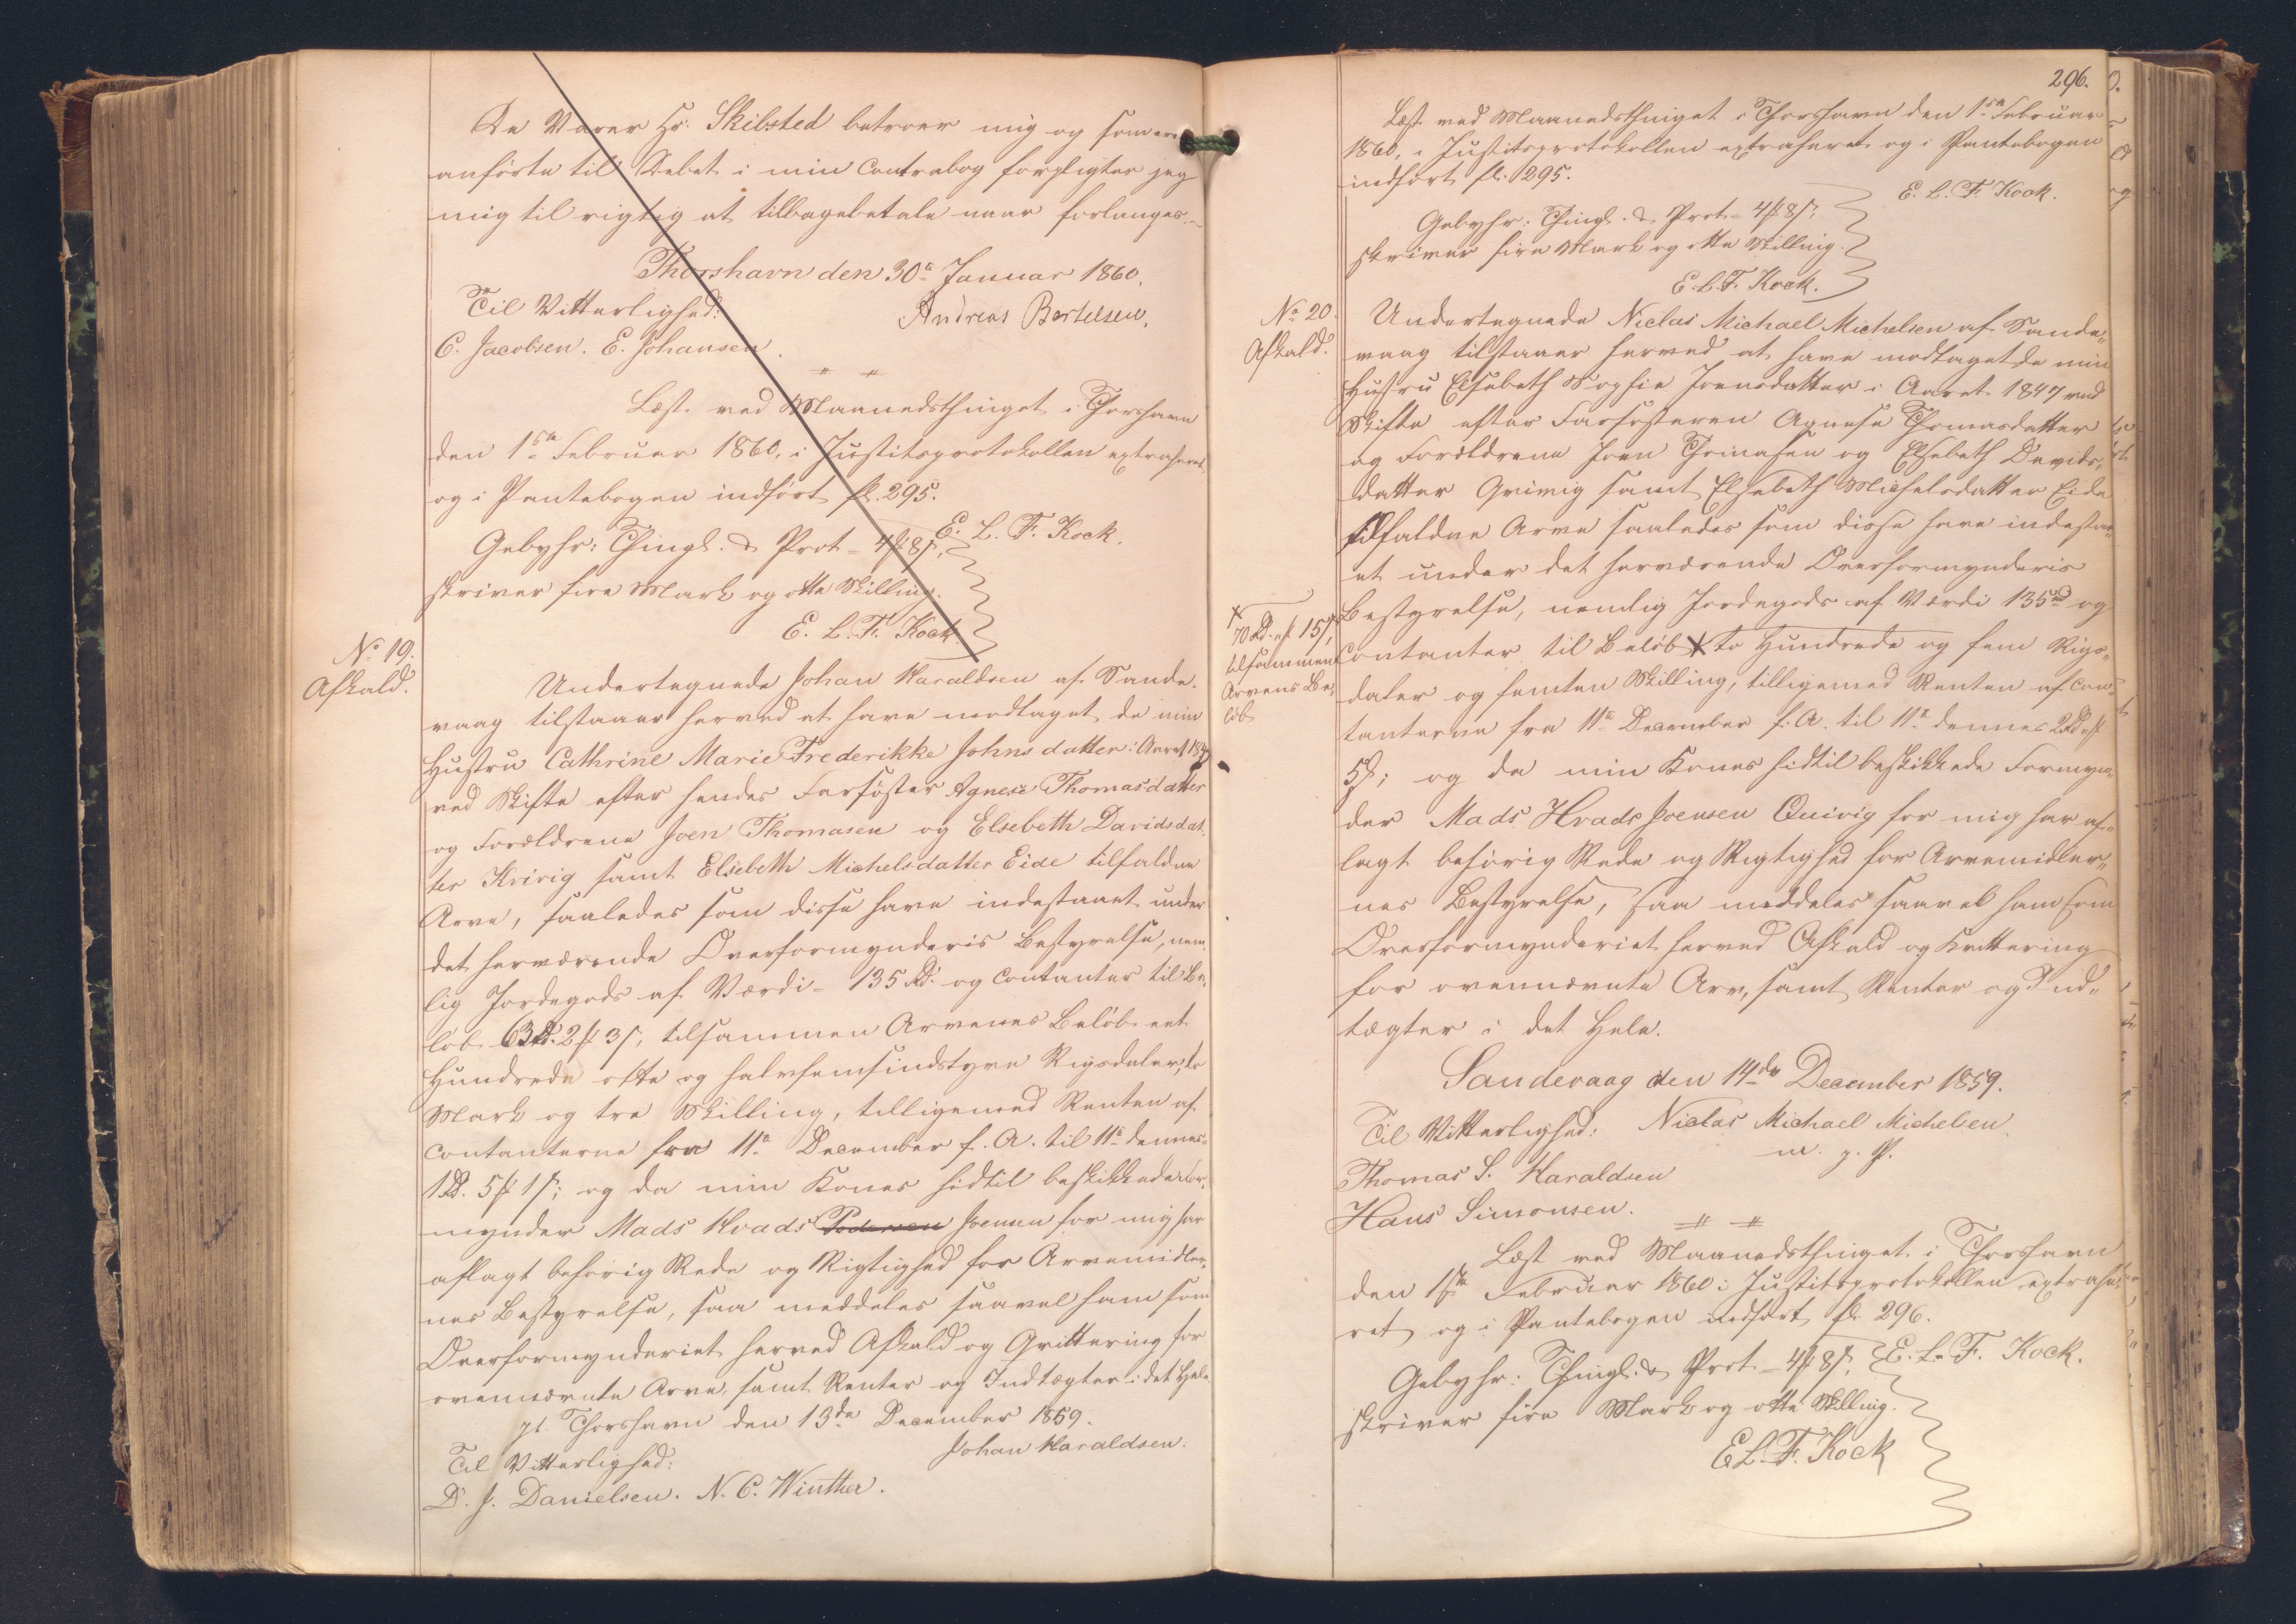 De Varer Hr. Skibsted betroer mig og som ere
anförte til Debet i min Contrabog forpligter jeg
mig til rigtig at tilbagebetale naar forlanges.
Thorshavn den 30te Januar 1860.
Til Vitterlighed:
Andreas Bertelsen.
C. Jacobsen. E. Johansen.
Læst ved Maanedsthinget i Thorshavn
den 1ste Februar 1860, i Justitsprotokollen extraheret
og i Pantebogen indfört fl. 295.
E. L. F. Kock.
Gebyhr: Thingl. & Prot. 4 ℳ 8 ß,
skriver fire Mark og otte Skilling.
E. L. F. Kock
No 19.
Afkald.
Undertegnede Johan Haraldsen af Sande-
vaag tilstaaer herved at have modtaget de min
Hustru Cathrine Marie Frederikke Johnsdatter i Aaret 1847
ved Skifte efter hendes Farsöster Agnese Thomasdatter
og Forældrene Joen Thomasen og Elsebeth Davidsdat-
ter Kvivig samt Elsebeth Michelsdatter Eide tilfaldne
Arve, saaledes som disse have indestaaet under
det herværende Overformynderis Bestyrelse, nem-
lig Jordegods af Værdi 135 Rd. og Contanter til Be-
löb 63 Rd. 2 ℳ 3 ß, tilsammen Arvenes Belöb eet
Hundrede otte og halvfemsindstyve Rigsdaler, to
Mark og tre Skilling, tilligemed Renten af
Contanterne fra 11te December f. A. til 11te dennes
1 Rd. 5 ℳ 1 ß; og da min Kones hidtil beskikkede For-
mynder Mads Hvads Pedersen Joensen for mig har
aflagt behörig Rede og Rigtighed for Arvemidler-
nes Bestyrelse, saa meddeles saavel ham som
Overformynderiet herved Afkald og Qvittering for
ovennævnte Arve, samt Renter og Indtægter i det Hele.
pt. Thorshavn den 13de December 1859.
Johan Haraldsen.
Til Vitterlighed:
D. J. Danielsen. N. C. Winther.
296.
Læst ved Maanedsthinget i Thorshavn den 1ste Februar
1860, i Justitsprotokollen extraheret og i Pantebogen
indfört fl. 295.
E. L. F. Kock.
Gebyhr: Thingl. & Prot. 4 ℳ 8 ß,
skriver fire Mark og otte Skilling.
E. L. F. Kock.
No 20.
Afkald.
Undertegnede Niclas Michael Michelsen af Sande-
vaag tilstaaer herved at have modtaget de min
Hustru Elsebeth Sophie Joensdatter i Aaret 1847 ved
Skifte efter Farsösteren Agnese Thomasdatter
og Forældrene Joen Thomasen og Elsebeth Davids-
datter Qvivig samt Elsebeth Michelsdatter Eide
tilfaldne Arve saaledes som disse have indestaa-
et under det herværende Overformynderis
Bestyrelse, nemlig Jordegods af Værdi 135 Rd og
Contanter til Belöb × to Hundrede og fem Rigs-
× 70 Rd. " ℳ 15 ß,
tilsammen
Arvens Be-
löb
daler og femten Skilling, tilligemed Renten af Con-
tanterne fra 11te December f. A. til 11te dennes 2 Rd " ℳ
5 ß; og da min Kones hidtil beskikkede Formyn-
der Mads Hvads Joensen Quivig for mig har af-
lagt behörig Rede og Rigtighed for Arvemidler-
nes Bestyrelse, saa meddeles saavel ham som
Overformynderiet herved Afkald og Kvittering
for ovennævnte Arv, samt Renter og Ind-
tægter i det Hele.
Sandevaag den 14de December 1859.
Til Vitterlighed: Niclas Michael Michelsen.
m. p. P.
Thomas S. Haraldsen
Hans Simonsen.
Læst ved Maanedsthinget i Thorshavn
den 1ste Februar 1860 i Justitsprotokollen extrahe-
ret og i Pantebogen indfört fl. 296.
E. L. F. Kock.
Gebyhr: Thingl. & Prot. 4 ℳ 8 ß,
skriver fire Mark og otte Skilling.
E. L. F. Kock